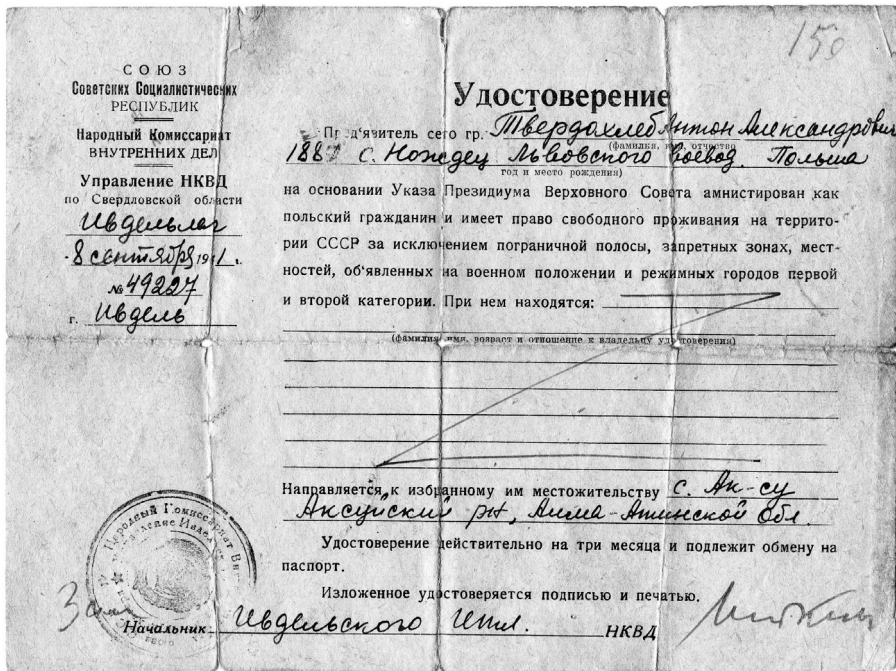 150
СОЮЗ
Советских Социалистических
РЕСПУБЛИК
Народный Комиссариат
ВНУТРЕННИХ ДЕЛ
Управление НКВД
по Свердловской области
Ивдельлаг
8 сентября 1941 г.
№ 49227
г. Ивдель
Удостоверение
Пред'явитель сего гр. Твердохлеб Антон Александрович
(фамилия, имя, отчество
1887 с. Ноздец Львовского воевод. Польша
год и место рождения)
на основании Указа Президиума Верховного Совета амнистирован как
польский гражданин и имеет право свободного проживания на террито-
рии СССР за исключением пограничной полосы, запретных зонах, мест-
ностей, об'явленных на военном положении и режимных городов первой
и второй категории. При нем находятся:
(фамилия, имя, возраст и отношение к владельцу удостоверения)
Направляется к избранному им местожительству с. Ак-су
Аксуйский рн, Алма-Атинской обл.
Удостоверение действительно на три месяца и подлежит обмену на
паспорт.
Изложенное удостоверяется подписью и печатью.
Народный Комиссариат Вн
Начальник Ивдельского Итл. НКВД